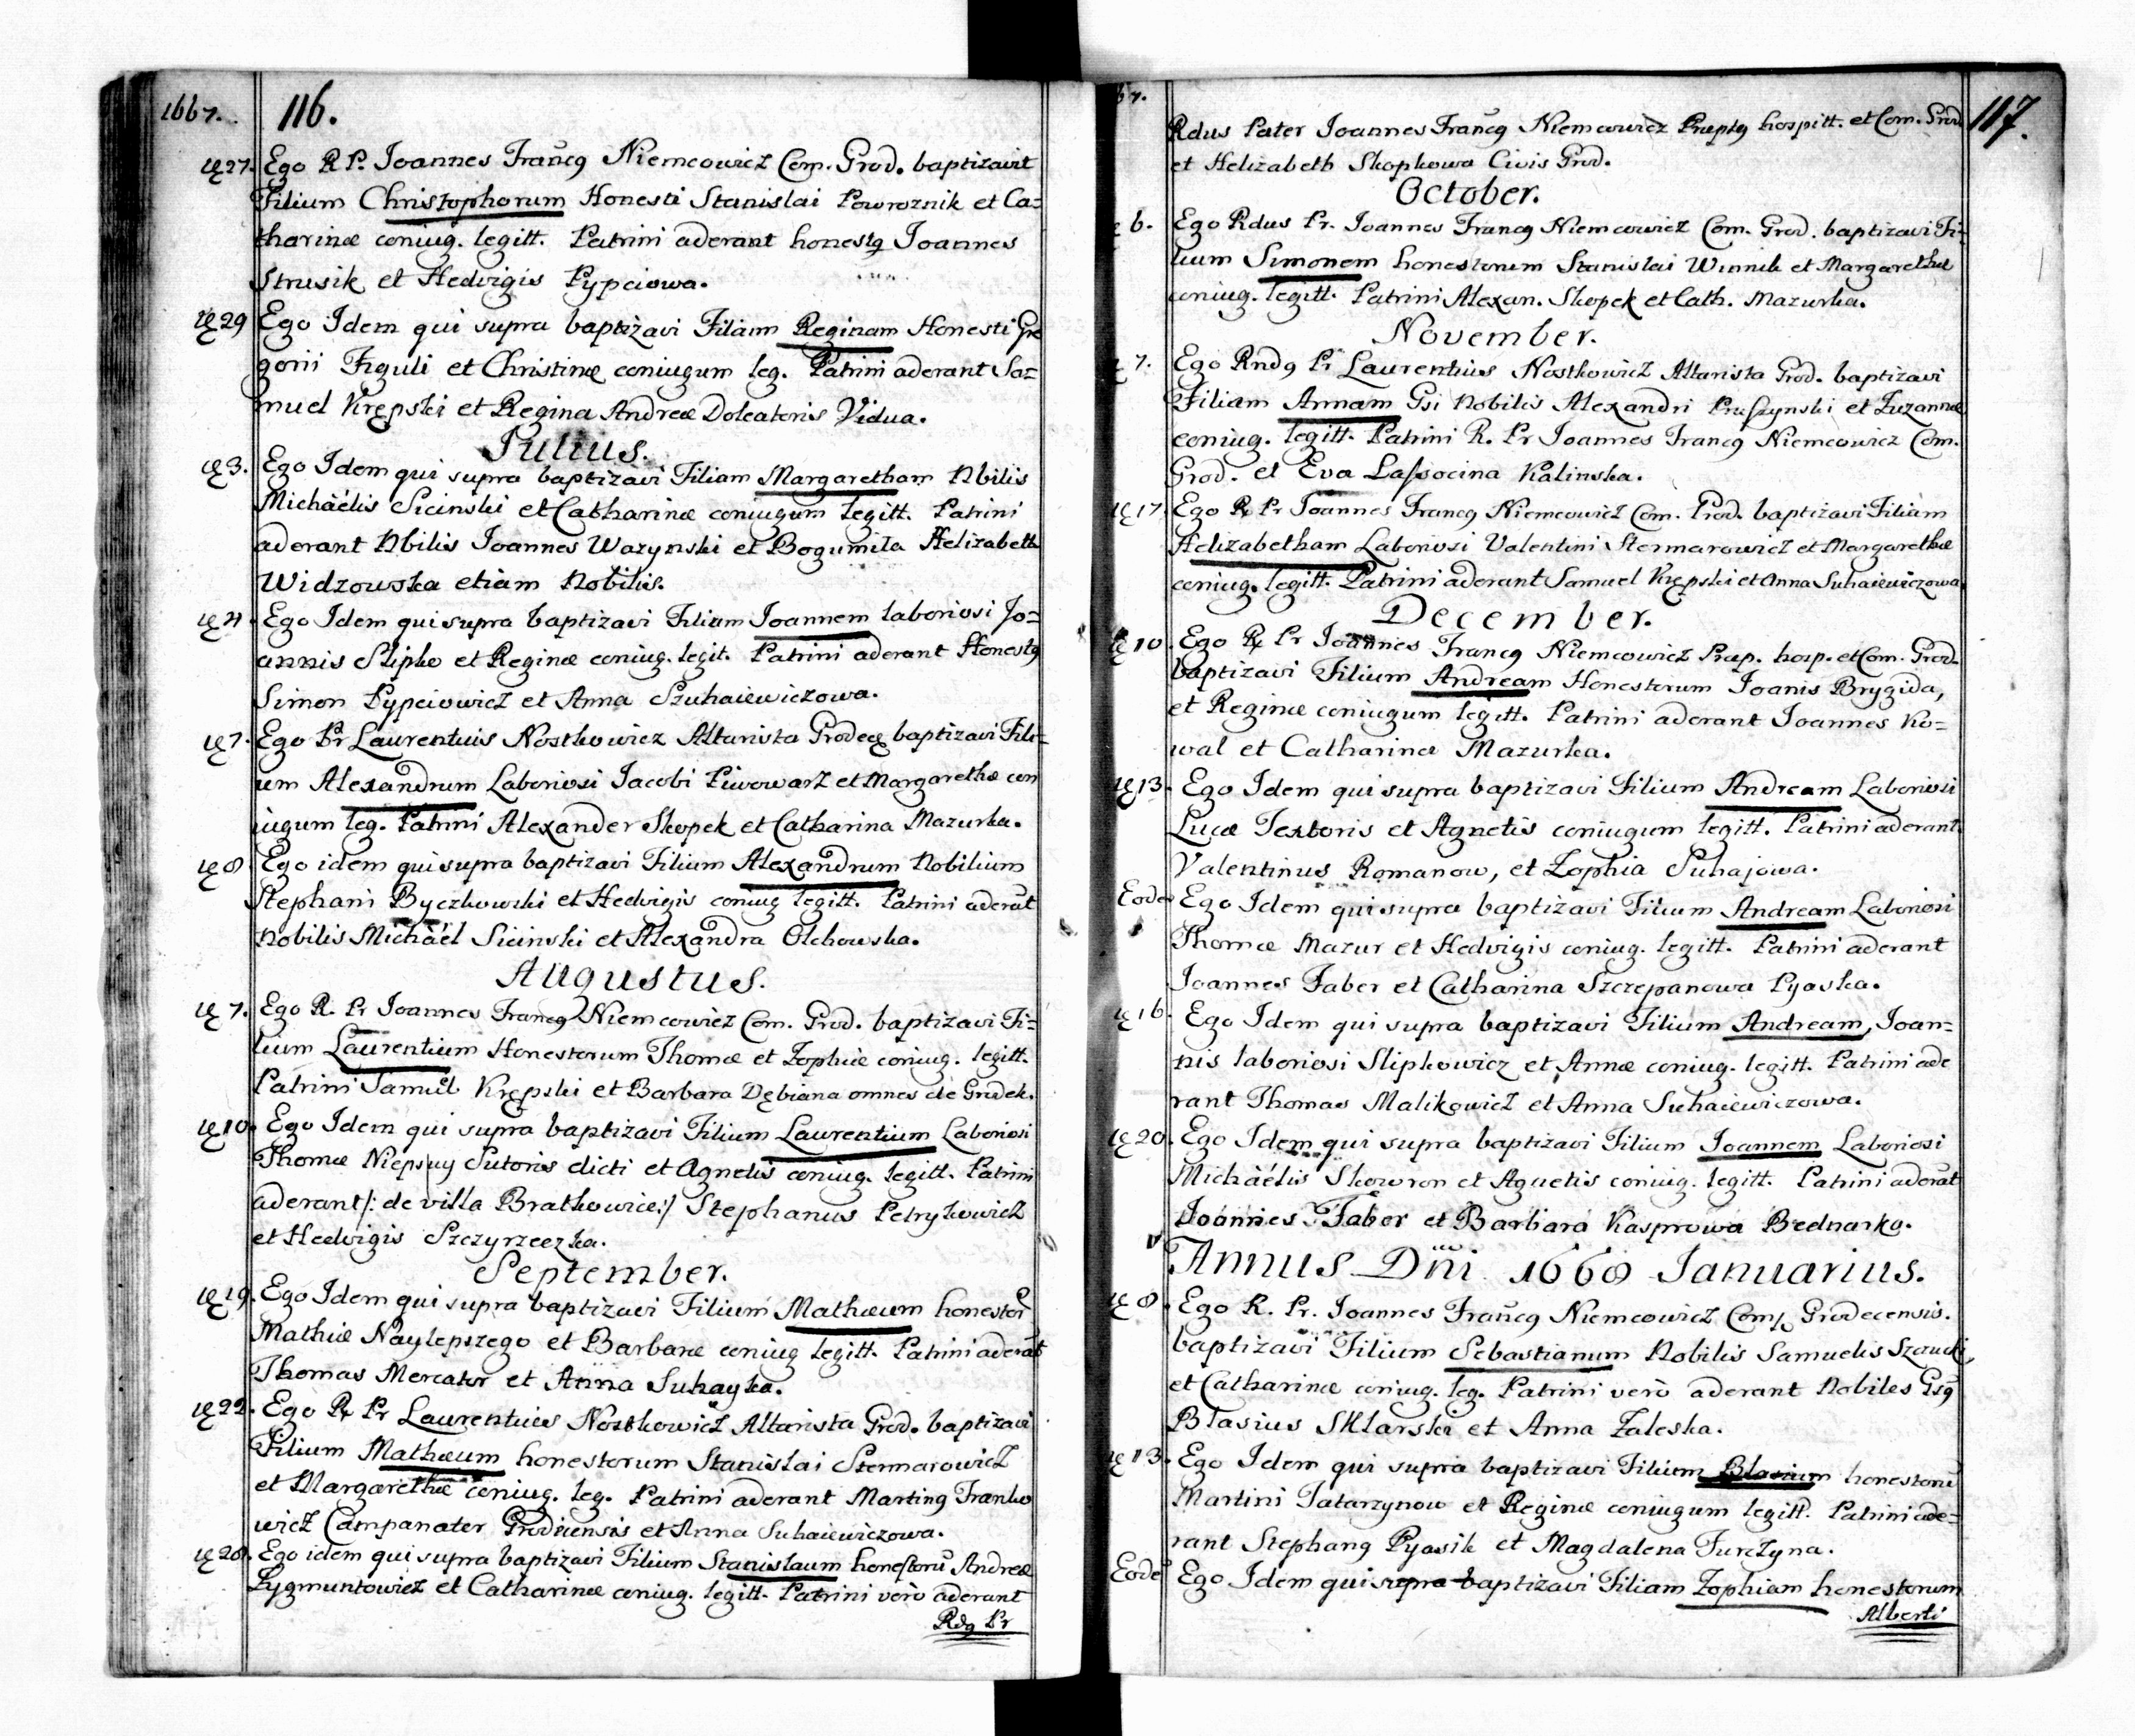 1667.
116.
27. Ego R P. Joannes Francq Niemcowicz Com. Grod. baptizavit
Filium Christophorum Honesti Stanislai Powroznik et Ca=
tharinæ coniug. legitt. Patrini aderant honestq Joannes
Strusik et Hedvigis Pypciowa.
29 Ego Idem qui supra baptizavi Filiam Reginam Honesti Gre
gorii Figuli et Christinæ coniugum leg. Patrini aderant Sa=
muel Krępski et Regina Andreæ Doleatoris Vidua.
Julius.
3. Ego Idem qui supra baptizavi Filiam Margaretham Nbilis
Michäélis Sicinski et Catharinæ coniugum legitt. Patrini
aderant Nbilis Joannes Wazynski et Bogumila Helizabeth
Widzowska etiam Nobilis.
4. Ego Idem qui supra baptizavi Filium Joannem laboriosi Jo=
annis Slipko et Reginæ coniug. legit. Patrini aderant Honestq
Simon Pypciowicz et Anna Szuhaiewiczowa.
7. Ego Pr Laurentius Nostkowicz Altarista Grodecę baptizavi Fili=
um Alexandrum Laboriosi Jacobi Piwowarz et Margarethæ con
iugum leg. Patrini Alexander Skopek et Catharina Mazurka.
8. Ego idem qui supra baptizavi Filium Alexandrum Nobilium
Stephani Byczkowski et Hedvigis coniug legitt. Patrini aderāt
Nobilis Michäél Sicinski et Alexandra Olchowska.
Augustus.
7. Ego R. Pr Joannes Francq Niemcowicz Com. Grod. baptizavi Fi=
lium Laurentium Honestorum Thomæ et Zophiæ coniug. legitt.
Patrini Samuel Krępski et Barbara Dębiana omnes de Grodek.
10. Ego Idem qui supra baptizavi Filium Laurentium Laboriosi
Thomæ Sutoris dicti et Agnetis coniug. legitt. Patrini
aderant /: de villa Bratkowice :/ Stephanus Petrykowicz
et Hedvigis Szczyrzeczka.
September.
19. Ego Idem qui supra baptizavi Filium Mathæum honestor
Mathiæ Naylepszego et Barbaræ coniug legitt. Patrini aderāt
Thomas Mercator et Anna Suhayka.
22. Ego R Pr Laurentius Nostkowicz Altarista Grod. baptizavi
Filium Mathæum honestorum Stanislai Stermarowicz
et Margarethæ coniug. leg. Patrini aderant Martinq Franko
wicz Campanator Grodicensis et Anna Suhaiewiczowa.
28. Ego idem qui supra baptizavi Filium Stanislaum honestorū Andreæ
Zygmuntowicz et Catharinæ coniug. legitt. Patrini verò aderant
Rdq Pr
67.
117.
Rdus Pater Joannes Francq Niemcowicz Præptq hospitt. et Com. Grod
et Helizabeth Skopkowa Civis Grod.
October.
6. Ego Rdus Pr. Joannes Francq Niemcowicz Com. Grod. baptizavi Fi=
lium Simonem honestorum Stanislai Winnik et Margarethæ
coniug. legitt. Patrini Alexan. Skopek et Cath. Mazurka.
November.
7. Ego Rndq Pr Laurentius Nostkowicz Altarista Grod. baptizavi
Filiam Annam Gsi Nobilis Alexandri Pruszynski et Zuzannæ
coniug. legitt. Patrini R. Pr Joannes Francq Niemcowicz Com.
Grod. et Eva Lassocina Kalinska.
17. Ego R Pr Joannes Francq Niemcowicz Com. Grod. baptizavi Filiam
Helizabetham Laboriosi Valentini Stermarowicz et Margarethæ
coniug. legitt. Patrini aderant Samuel Krępski et Anna Suhaiewiczowa.
December.
10. Ego R Pr Joannes Francq Niemcowicz Præp. hosp. et Com. Grod.
baptizavi Filium Andream Honestorum Joanis Brygida,
et Reginæ coniugum legitt. Patrini aderant Joannes Ko=
wal et Catharina Mazurka.
13. Ego Idem qui supra baptizavi Filium Andream Laboriosi
Lucæ Textoris et Agnetis coniugum legitt. Patrini aderant
Valentinus Romanow, et Zophia Suhajowa.
Eodem Ego Idem qui supra baptizavi Filium Andream Laboriosi
Thomæ Mazur et Hedvigis coniug. legitt. Patrini aderant
Joannes Faber et Catharina Szczepanowa Pyaska.
16. Ego Idem qui supra baptizavi Filium Andream, Joan=
nis laboriosi Slipkowicz et Annæ coniug. legitt. Patrini ade
rant Thomas Malikowicz et Anna Suhaiewiczowa.
20. Ego Idem qui supra baptizavi Filium Joannem Laboriosi
Michäélis Skowron et Agnetis coniug. legitt. Patrini aderāt
Joannes Faber et Barbara Kasprowa Bednarka.
Annus Dni 1668 Januarius.
8. Ego R. Pr. Joannes Francq Niemcowicz Comp Grodecensis.
baptizavi Filium Sebastianum Nobilis Samuelis
et Catharinæ coniug. leg. Patrini verò aderant Nobiles Gsq
Blasius Sklarski et Anna Zaleska.
13. Ego Idem qui supra baptizavi Filium Blasium honestorū
Martini Tatarzynow et Reginæ coniugum legitt. Patrini ade=
rant Stephanq Pyasik et Magdalena Furczyna.
Eodē Ego Idem qui supra baptizavi Filiam Zophiam honestorum
Alberti